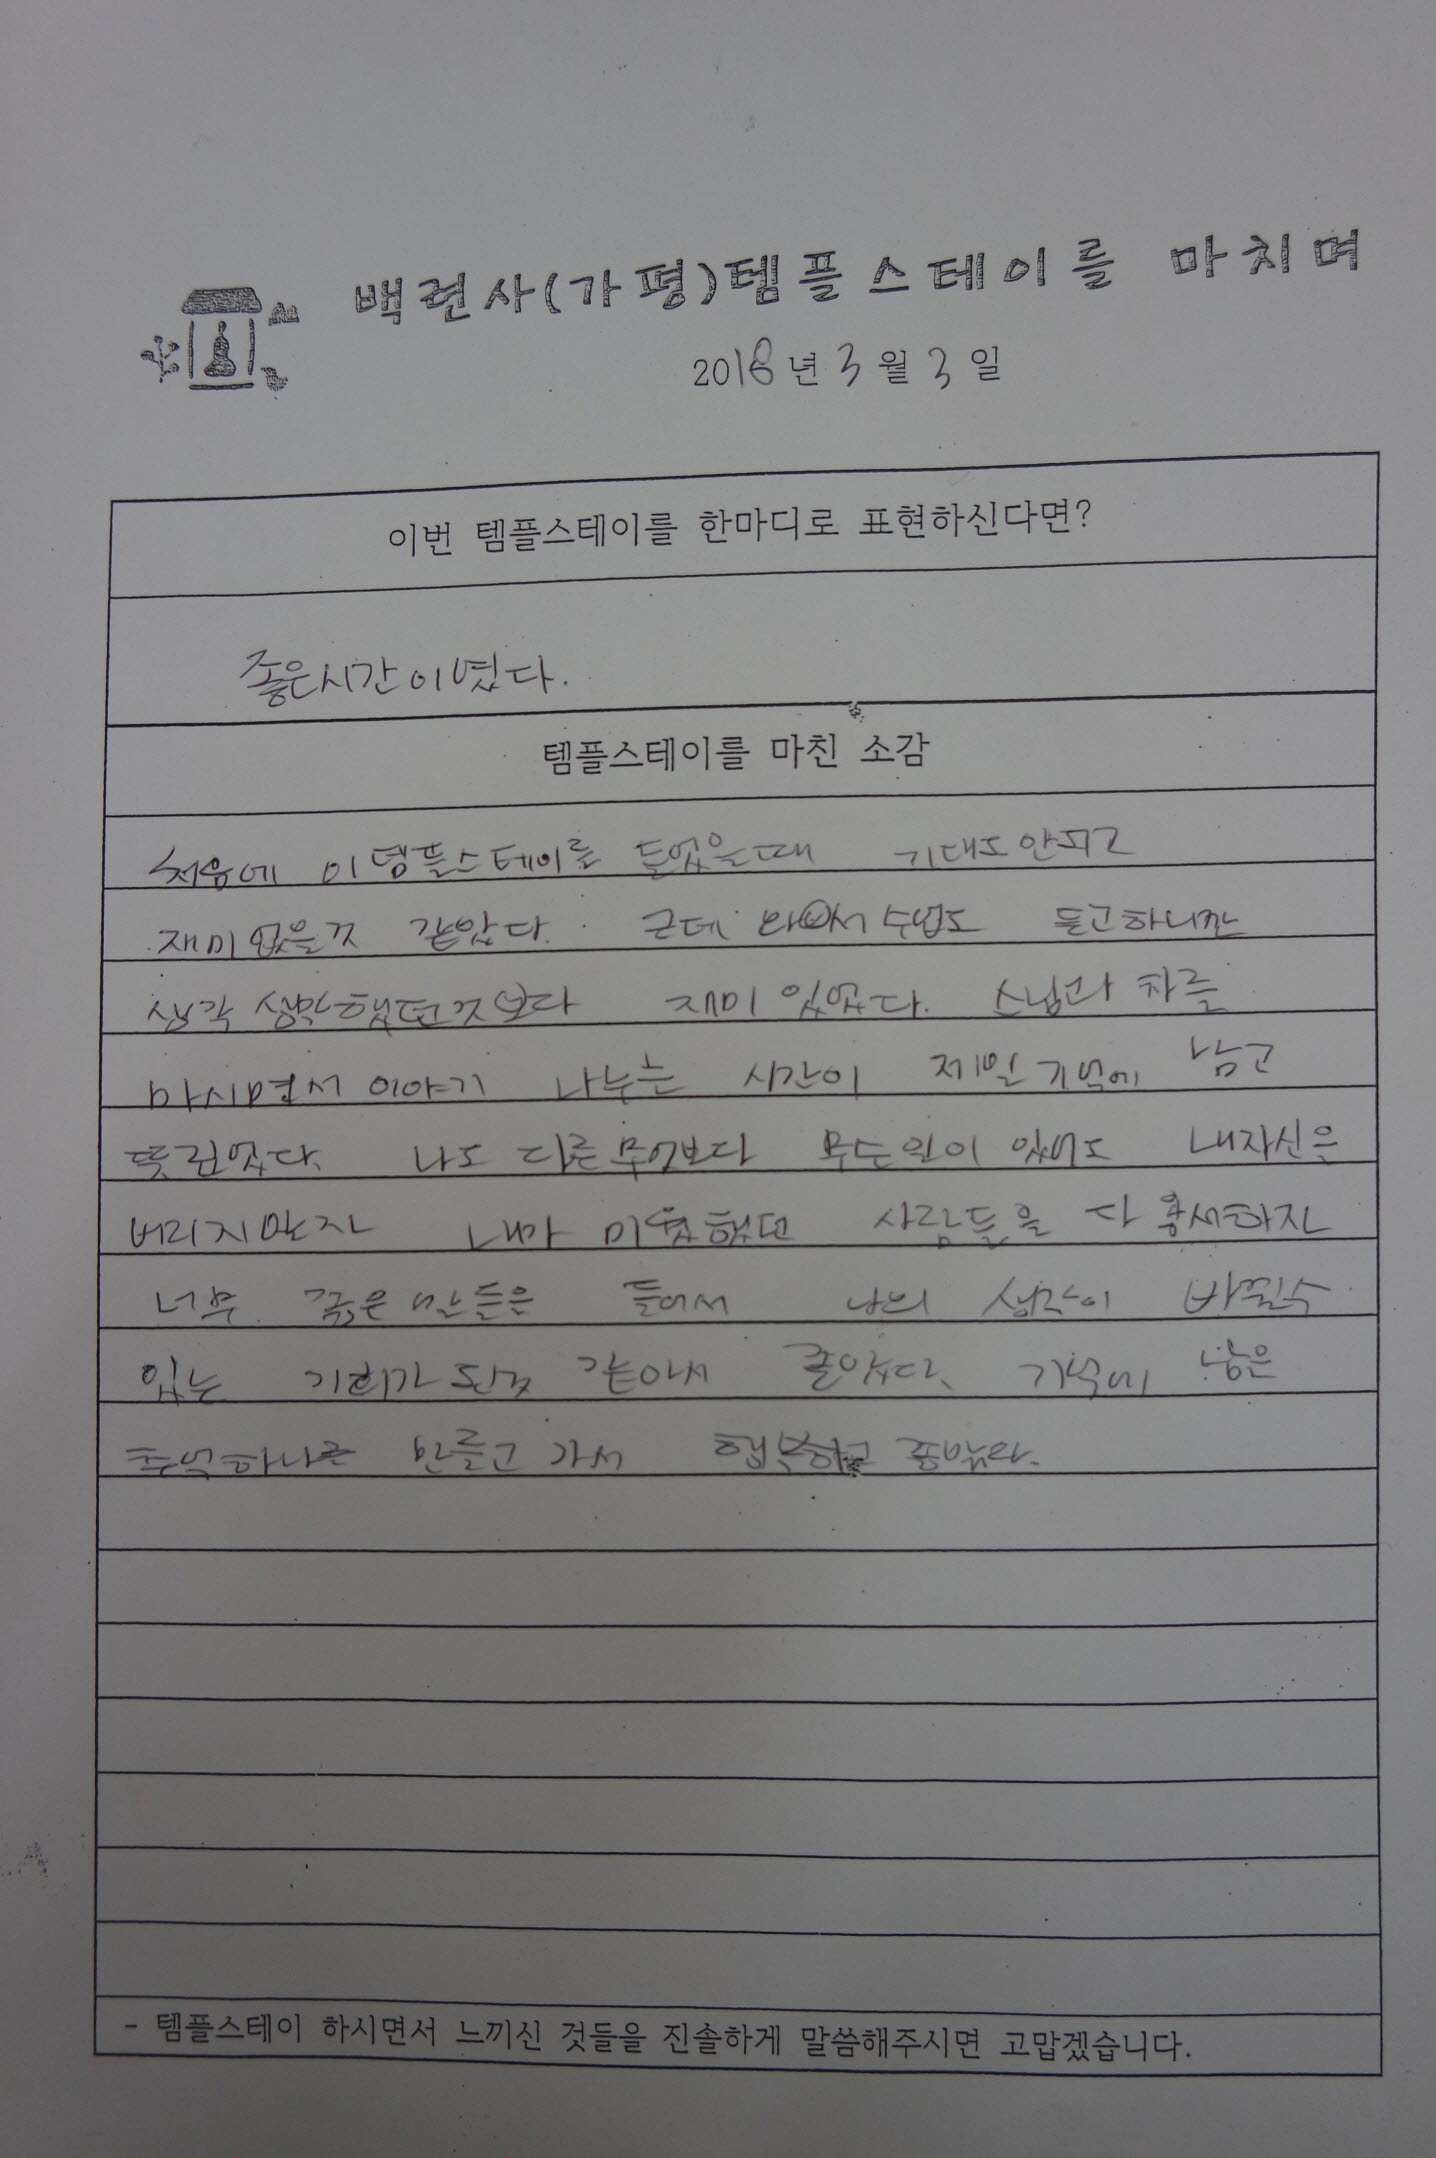 백련사(가평)템플스테이를 마치며
2018년 3월 3일
이번 템플스테이를 한마디로 표현하신다면?
좋은시간이였다.
템플스테이를 마친 소감
처음에 이 템플스테이를 들었을때 기대도안되고
재미없을것 같았다. 근데 와서 수업도 듣고하니깐
생각 생각했던것보다 재미 있었다. 스님과 차를
마시면서 이야기 나누는 시간이 제일 기억에 남고
뜻깊었다. 나도 다른무엇보다 무슨일이 있어도 내자신은
버리지말자 내가 미워했던 사람들을 다 용서하자
너무 좋은 말들은 들어서 나의 생각이 바뀔수
있는 기회가 된것 같아서 좋았다. 기억에 남은
추억하나를 만들고 가서 행복하고 좋았다.
- 템플스테이 하시면서 느끼신 것들을 진솔하게 말씀해주시면 고맙겠습니다.